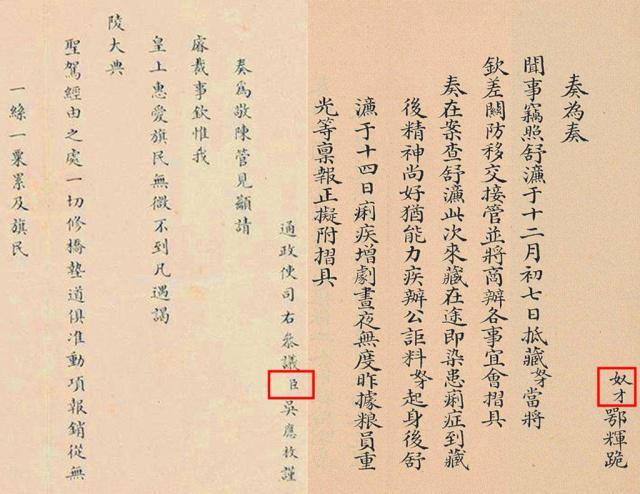 奴才鄂輝跪
奏為奏
聞事竊照舒濂于十二月初七日抵藏奴才當將
欽差關防移交接管並將商辦各事宜會摺具
奏在案查舒濂此次來藏在途即染患痢症到藏
後精神尚好猶能力疾辦公詎料奴才起身後舒
濂于十四日痢疾增劇晝夜無度昨據粮員重
光等稟報正擬附摺具
通政使司右參議臣吳應枚謹
奏為敬陳管見顒請
睿裁事欽惟我
皇上惠愛旗民無微不到凡遇謁
陵大典
聖駕經由之處一切修橋墊道俱准動項報銷從無
一絲一粟累及旗民